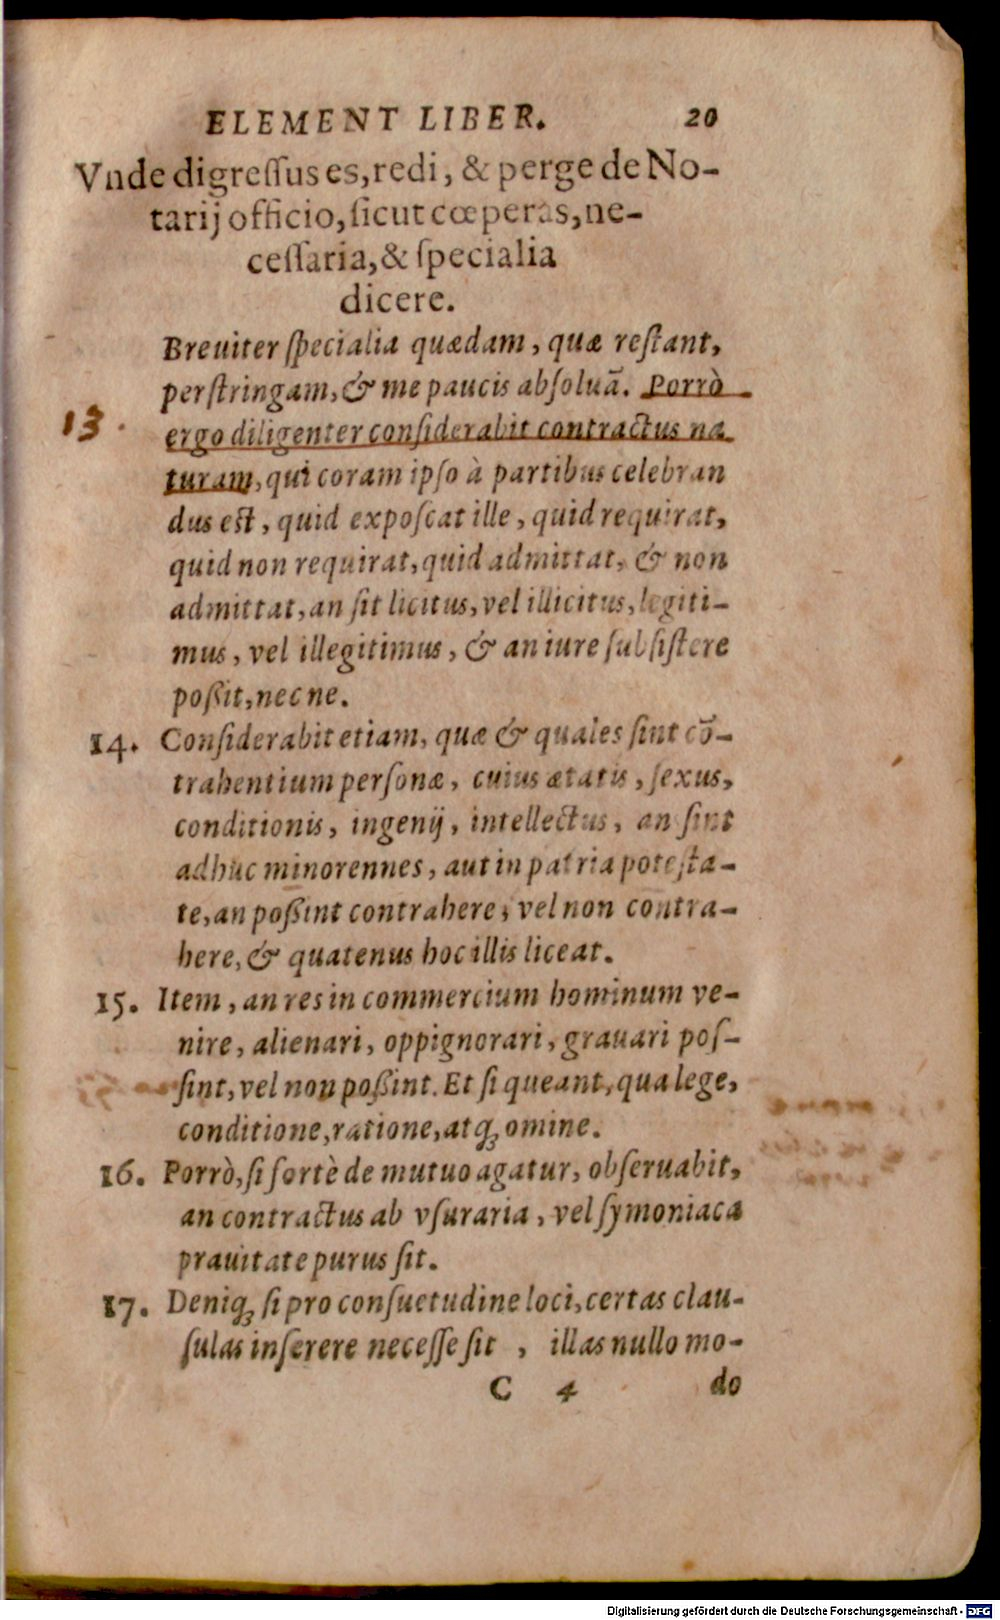 ELEMENT LIBER. 20
Vnde digreſſus es, redi, & perge de No-
tarij officio, ſicut cœperas, ne-
ceſſaria, & ſpecialia
dicere.
Breuiter ſpecialia quædam, quæ reſtant,
perſtringam, & me paucis abſoluã. Porrò
13. ergo diligenter conſiderabit contractus na
turam, qui coram ipſo à partibus celebran
dus eſt, quid expoſcat ille, quid requirat,
quid non requirat, quid admittat, & non
admittat, an ſit licitus, vel illicitus, legiti-
mus, vel illegitimus, & an iure ſubſiſtere
poßit, nec ne.
14. Conſiderabit etiam, quæ & quales ſint cõ-
trahentium perſonæ, cuius ætatis, ſexus,
conditionis, ingenij, intellectus, an ſint
adhuc minorennes, aut in patria poteſta-
te, an poßint contrahere, vel non contra-
here, & quatenus hoc illis liceat.
15. Item, an res in commercium hominum ve-
nire, alienari, oppignorari, grauari poſ-
ſint, vel non poßint. Et ſi queant, qua lege,
conditione, ratione, atq; omine.
16. Porrò, ſi fortè de mutuo agatur, obſeruabit,
an contractus ab vſuraria, vel ſymoniaca
prauitate purus ſit.
17. Deniq; ſi pro conſuetudine loci, certas clau-
ſulas inſerere neceſſe ſit, illas nullo mo-
C 4 do
Digitalisierung gefördert durch die Deutsche Forschungsgemeinschaft - DFG